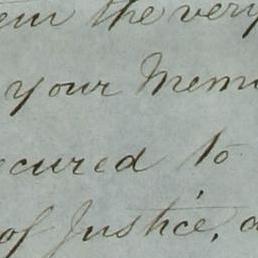 em the very
your Mem
ecured to
of Justice,